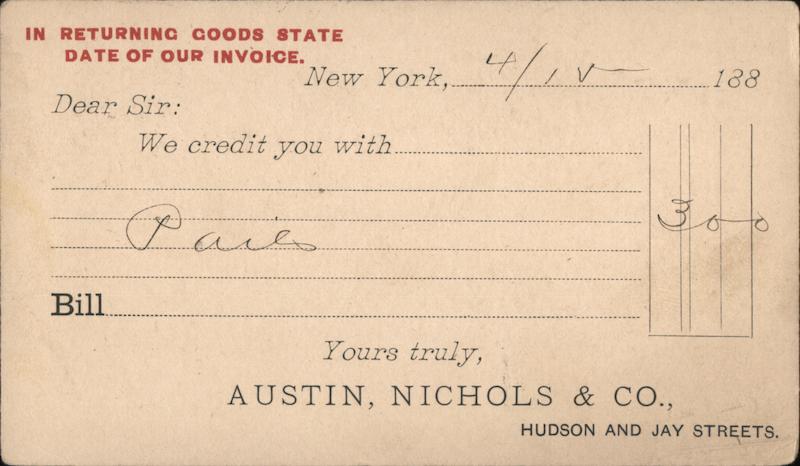 IN RETURNING GOODS STATE
DATE OF OUR INVOICE.
New York, 4/15 188
Dear Sir:
We credit you with
Pails 3 00
Bill
Yours truly,
AUSTIN, NICHOLS & CO.,
HUDSON AND JAY STREETS.